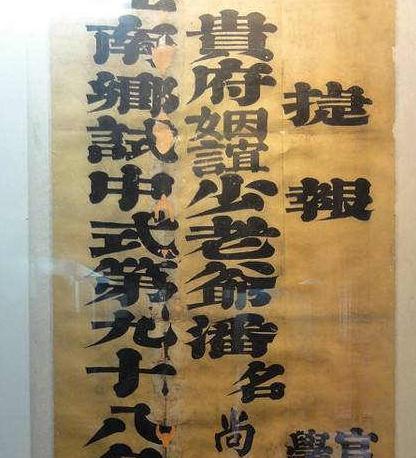 捷報
貴府姻誼少老爺潘名尚
南鄉試中式第九十八
官學